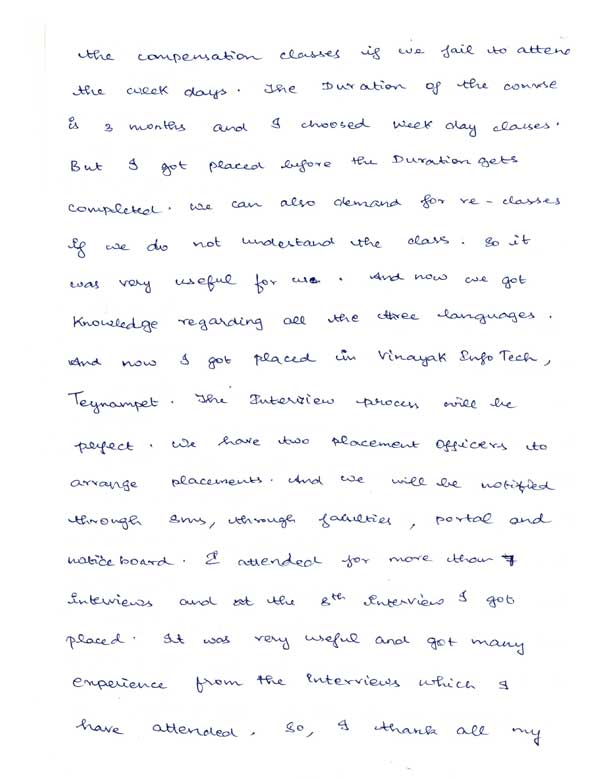 the compensation classes if we fail to attend
the week days. The Duration of the course
is 3 months and I choosed week day classes.
But I got placed before the Duration gets
completed. we can also demand for re-classes
if we do not understand the class. so it
was very useful for us. And now we got
knowledge regarding all the three languages.
And now I got placed in Vinayak Info Tech,
Teynampet. The Interview process will be
perfect. We have two placement officers to
arrange placements. And we will be notified
through sms, through faculties, portal and
notice board. I attended for more than 7
interviews and at the 8th Interview I got
placed. It was very useful and got many
experience from the interviews which I
have attended. So, I thank all my